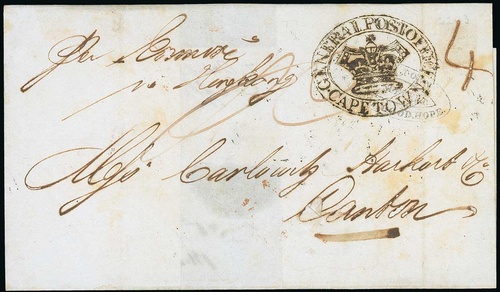 GENERAL POST OFFICE
CAPE TOWN
OD HOPE.
4
per
via Hongkong
Messrs Carlowitz Harkort & Co
Canton